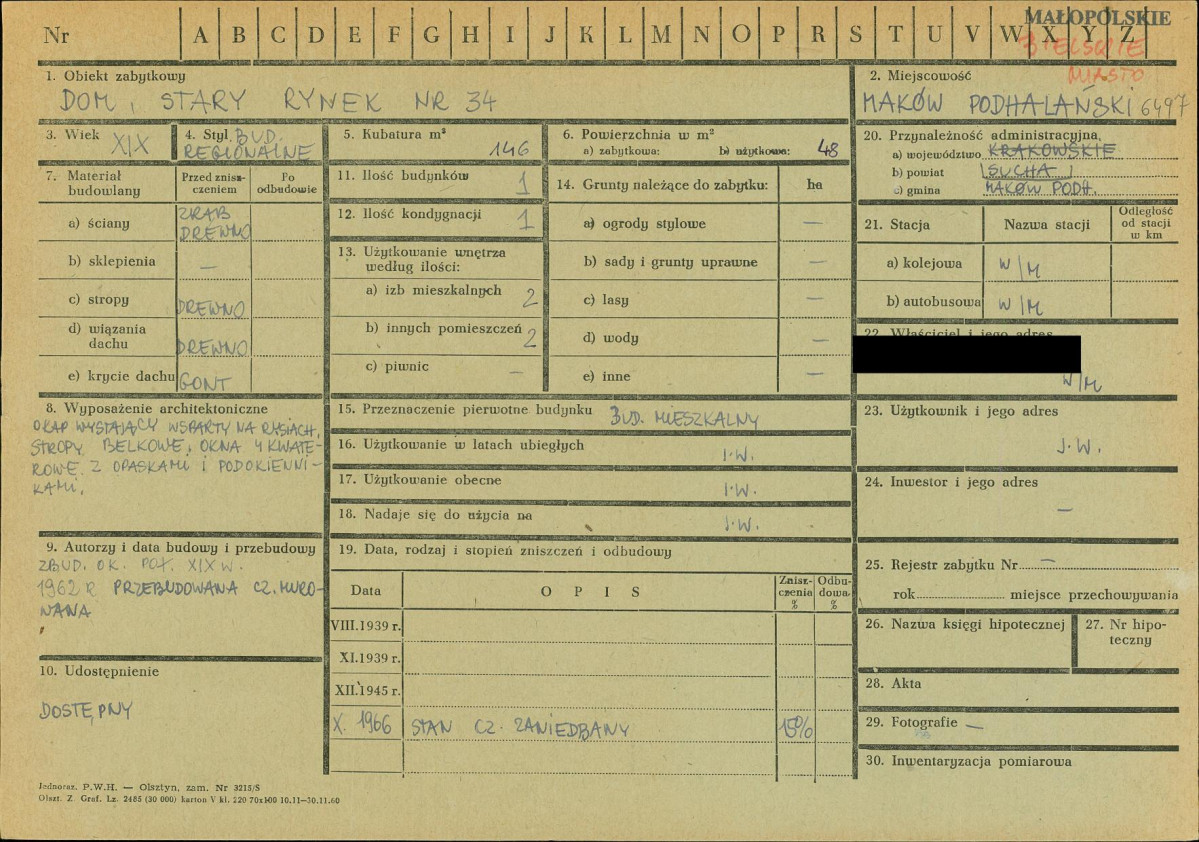 MAŁOPOLSKIE
Nr A B C D E F G H I J K L M N O P R S T U V W X Y Z
BIELSKIE
MIASTO
1. Obiekt zabytkowy
DOM, STARY RYNEK NR 34
2. Miejscowość
MAKÓW PODHALAŃSKI 6497
3. Wiek XIX
4. Styl BUD.
REGIONALNE
5. Kubatura m³
146
6. Powierzchnia w m²
a) zabytkowa: b) użytkowa: 48
20. Przynależność administracyjna,
a) województwo KRAKOWSKIE
b) powiat SUCHA
c) gmina MAKÓW PODH.
7. Materiał budowlany
Przed zniszczeniem
Po odbudowie
a) ściany ZRĄB
DREWNO
b) sklepienia —
c) stropy DREWNO
d) wiązania
dachu DREWNO
e) krycie dachu GONT
8. Wyposażenie architektoniczne
OKAP WYSTAJĄCY WSPARTY NA RYSIACH,
STROPY BELKOWE, OKNA 4 KWATE-
ROWE Z OPASKAMI I PODOKIENNI-
KAMI.
9. Autorzy i data budowy i przebudowy
ZBUD. OK. POŁ. XIX W.
1962 R PRZEBUDOWANA CZ. MURO-
WANA
10. Udostępnienie
DOSTĘPNY
11. Ilość budynków 1
12. Ilość kondygnacji 1
13. Użytkowanie wnętrza
według ilości:
a) izb mieszkalnych 2
b) innych pomieszczeń 2
c) piwnic —
14. Grunty należące do zabytku: ha
a) ogrody stylowe —
b) sady i grunty uprawne —
c) lasy —
d) wody —
e) inne —
15. Przeznaczenie pierwotne budynku BUD. MIESZKALNY
16. Użytkowanie w latach ubiegłych J.W.
17. Użytkowanie obecne J.W.
18. Nadaje się do użycia na J.W.
19. Data, rodzaj i stopień zniszczeń i odbudowy
Data OPIS Zniszczenia % Odbudowa %
VIII.1939 r.
XI.1939 r.
XII.1945 r.
X. 1966 STAN CZ. ZANIEDBANY 15%
21. Stacja Nazwa stacji Odległość od stacji w km
a) kolejowa W/M
b) autobusowa W/M
22. Właściciel i jego adres
W/M
23. Użytkownik i jego adres
J.W.
24. Inwestor i jego adres
—
25. Rejestr zabytku Nr —
rok miejsce przechowywania
26. Nazwa księgi hipotecznej
27. Nr hipo-
teczny
28. Akta
29. Fotografie —
30. Inwentaryzacja pomiarowa
Jednoraz. P.W.H. — Olsztyn, zam. Nr 3215/S
Olszt. Z. Graf. Lz. 2485 (30 000) karton V kl. 220 70x100 10.11—30.11.60